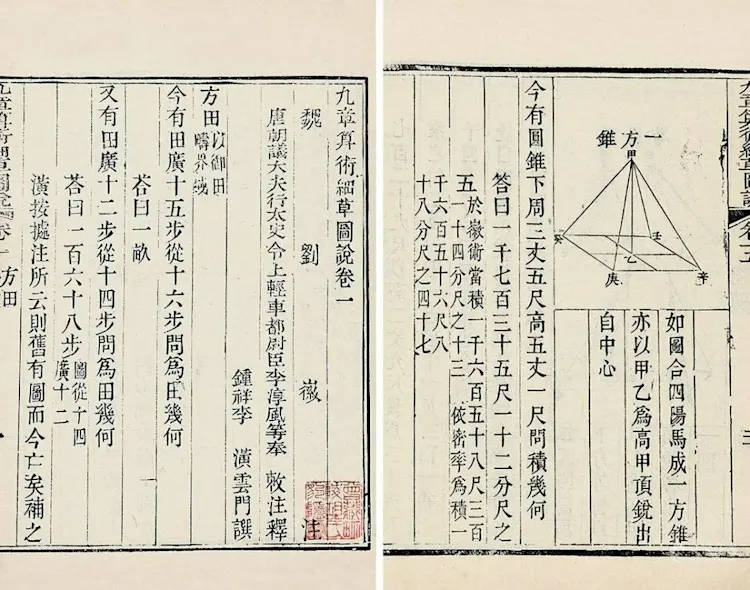 九章算術細草圖說卷一
魏 劉 徽 注
唐朝議大夫行太史令上輕車都尉臣李淳風等奉 敕注釋
鍾祥李 潢雲門譔
方田以御田
疇界域
今有田廣十五步從十六步問爲田幾何
荅曰一畝
又有田廣十二步從十四步問爲田幾何
荅曰一百六十八步圖從十四
廣十二
潢按據注所云則舊有圖而今亡矣補之
九章算術細草圖說卷一 方田
九章算術細草圖說 卷五
一方錐
甲
癸
壬
乙
庚
辛
如圖合四陽馬成一方錐
亦以甲乙爲高甲頂銳出
自中心
今有圓錐下周三丈五尺高五丈一尺問積幾何
答曰一千七百三十五尺一十二分尺之
五於徽術當積一千六百五十八尺三百
一十四分尺之十三 依密率爲積一
千六百五十六尺八
十八分尺之四十七